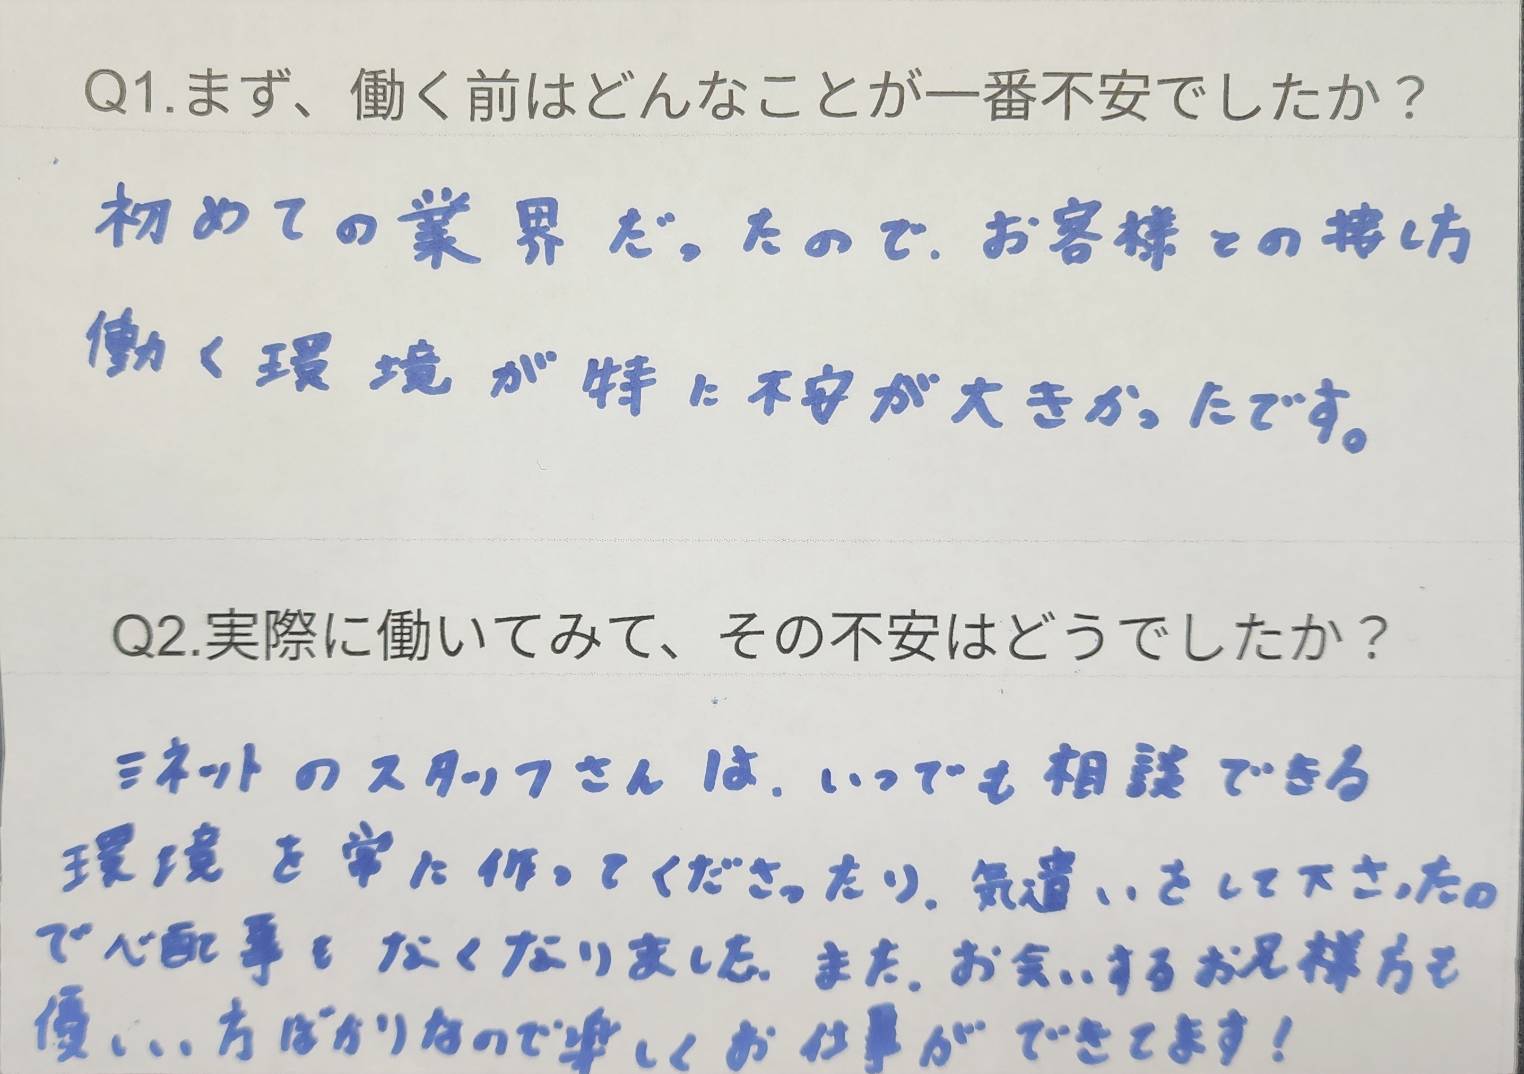 Q1.まず、働く前はどんなことが一番不安でしたか？
初めての業界だったので、お客様との接し方
働く環境が特に不安が大きかったです。
Q2.実際に働いてみて、その不安はどうでしたか？
ミネットのスタッフさんは、いつでも相談できる
環境を常に作ってくださったり、気遣いをして下さったの
で心配事もなくなりました。また、お会いするお兄様方も
優しい方ばかりなので楽しくお仕事ができてます！